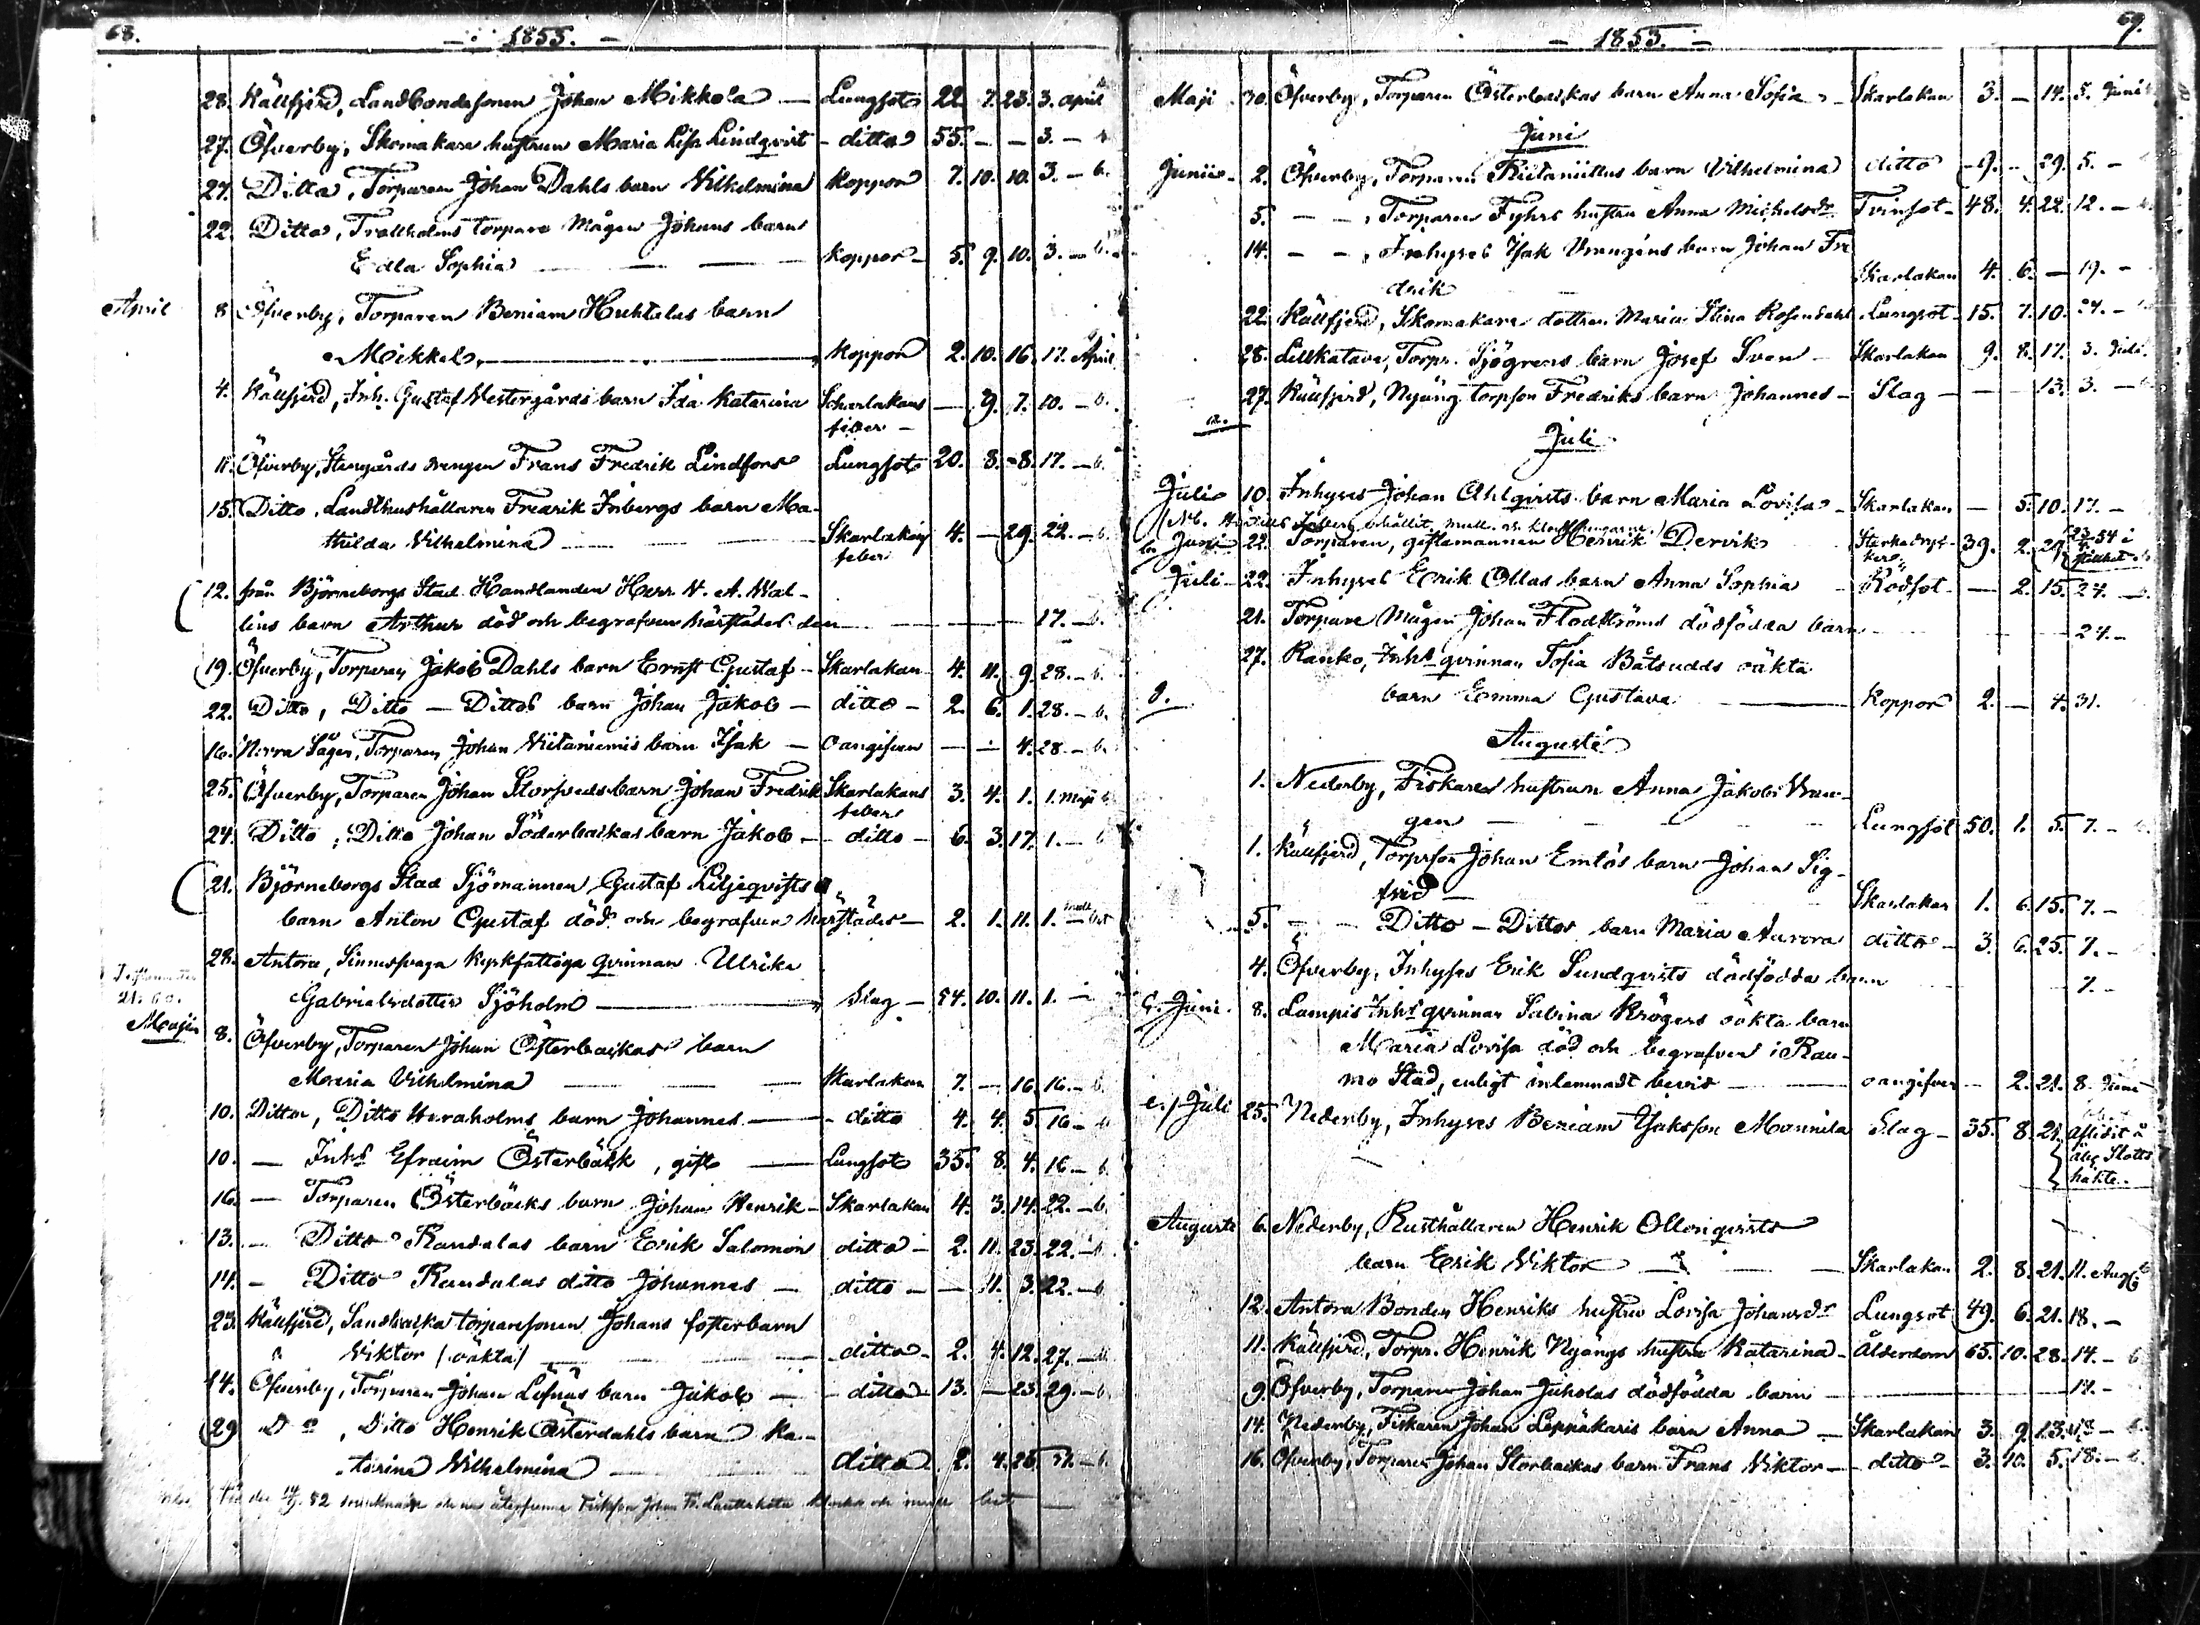 68.
1853.
28. Källfjerd, Landbondesonen Johan Mikkola — Lungsot 22. 7. 23. 3. april
27. Öfverby, Skomakare hustrun Maria Lisa Lindqvist — ditto 55. — — 3. —
27. Ditto, Torparen Johan Dahls barn Vilhelmina Koppor 7. 10. 10. 3. — b.
22. Ditto, Trallholms torpare Mågen Johans barn
Edla Sophia — Koppor — 5. 9. 10. 3. — b.
April 8 Öfverby, Torparen Beniam Huhtalas barn
Mikkel, — Koppor 2. 10. 16. 17. April
4. Källfjerd, Inh. Gustaf Vestergårds barn Ida Katarina Scharlakans — 9. 7. 10. — b.
feber —
11. Öfverby, Stengårds drengen Frans Fredrik Lindfors Lungsot 20. 8. 8. 17. — b.
15. Ditto, Landthushållaren Fredrik Inbergs barn Ma-
thilda Vilhelmina — Skarlakans 4. — 29. 22. — b.
feber
12. från Björneborgs Stad Handlanden Herr N. A. Wal-
lins barn Arthur död och begrafven härstädes den — 17. — b.
19. Öfverby, Torparen Jakob Dahls barn Ernst Gustaf — Skarlakan 4. 11. 9. 28. — b.
22. Ditto, Ditto — Dittos barn Johan Jakob — ditto — 2. 6. 1. 28. — b.
16. Norra Sågen, Torparen Johan Viitaniemis barn Isak — oangifven — — 4. 28. — b.
25. Öfverby, Torparen Johan Storsveds barn Johan Fredrik Skarlakans 3. 4. 1. 1. Maji
feber
24. Ditto, Ditto Johan Söderbackas barn Jakob — ditto — 6. 3. 17. 1. — b
21. Björneborgs Stad Sjömannen Gustaf Liljeqvists
barn Anton Gustaf död och begrafven härstädes — 2. 1. 11. 1. —
28. Antora, Sinnessvaga kyrkfattiga qvinnan Ulrika
Gabrielsdotter Sjöholm — Slag — 54. 10. 11. 1. —
Maji 8. Öfverby, Torparen Johan Österbackas barn
Maria Vilhelmina — Skarlakan 7. — 16. 16. — b.
10. Ditto, Ditto Heraholms barn Johannes — ditto 4. 4. 5. 16. —
10. — Inhs Efraim Österbäck, gift — Lungsot 35. 8. 4. 16. — b.
16. — Torparen Österbäcks barn Johan Henrik — Skarlakan 4. 3. 14. 22. — b.
13. — Ditto Randalas barn Erik Salomon ditto — 2. 11. 23. 22. — b
14. — Ditto Randalas ditto Johannes — ditto — — 11. 3. 22. — b
23. Källfjerd, Sandbacka torparesonen Johans fosterbarn
Viktor /oäkta/ — ditto — 2. 4. 12. 27. —
14. Öfverby, Torparen Johan Löfnäs barn Jakob — ditto 13. — 23. 29. — b
29 Do, Ditto Henrik Österdahls barn Ka-
tarina Vilhelmina — ditto 2. 4. 25 31. — b.
69.
1853.
Maji 30. Öfverby, Torparen Österbackas barn Anna Sofia — Skarlakan 3. — 14. 5. Junii
Juni
Junii 2. Öfverby, Torparen barn Vilhelmina ditto 9. — 29. 5. —
5. — —, Torparen Fyhrs hustru Anna Michelsdr Tvinsot 48. 4. 22. 12. —
14. — —, Inhyses Isak Vrangéns barn Johan Fre
drik — Skarlakan 4. 6. — 19. —
22. Källfjerd, Skomakare dottren Maria Stina Rosendahl Lungsot 15. 7. 10. 24. —
28. Lillkatava, Torpr. Sjögrens barn Josef Sven — Skarlakan 9. 8. 17. 3. Juli
27. Källfjerd, Nyäng torpson Fredriks barn Johannes — Slag — — 13. 3. —
Juli
Juli 10. Inhyses Johan Ahlqvists barn Maria Lovisa — Skarlakan — 5. 10. 17. —
Juni 22. Torparen, giftemannen Henrik Dervik Starka dryc- 39. 2. 29 23. 54 i
kers
Juli 22. Inhyses Erik Ollas barn Anna Sophia — Rödsot — 2. 15. 24. —
21. Torpare Mågen Johan Flodströms dödfödda barn — 24. —
27. Ranko, Inhs qvinnan Sofia Båtsudds oäkta
barn Emma Gustava — Koppor 2. — 4. 31.
Augusti
1. Nederby, Fiskares hustrun Anna Jakobs Vran-
gen — Lungsot 50. 1. 5. 7. —
1. Källfjerd, Torpson Johan Emlös barn Johan Sig-
frid — Skarlakan 1. 6. 15. 7. —
5. — Ditto — Dittos barn Maria Aurora ditto — 3. 6. 25. 7. —
4. Öfverby, Inhyses Erik Sundqvists dödfödda barn — 7. —
Juni 8. Lampis Inhs qvinnan Sabina Krögers oäkta barn
Maria Lovisa död och begrafven i Rau-
mo Stad, enligt inlemnadt bevis — oangifven — 2. 21. 8. Juni
Juli 25. Nederby, Inhyses Beniam Isaksson Mannila Slag — 35. 8. 21. aflidit å
Åbo Slotts
häkte.
Augusti 6. Nederby, Rusthållaren Henrik Ollonqvists
barn Erik Viktor — Skarlakan 2. 8. 21. 11. Aug
12. Antora Bonden Henriks hustru Lovisa Johansdr Lungsot 49. 6. 21. 18. —
11. Källfjerd, Torpr. Henrik Nyängs hustru Katarina — Ålderdom 65. 10. 28. 14. — b
9. Öfverby, Torparen Johan Juholas dödfödda barn — 14. —
14. Nederby, Fiskaren Johan Leppäkaris barn Anna — Skarlakan 3. 9. 13. 18 —
16. Öfverby, Torparen Johan Storbackas barn Frans Viktor — ditto — 3. 10. 5. 18. —